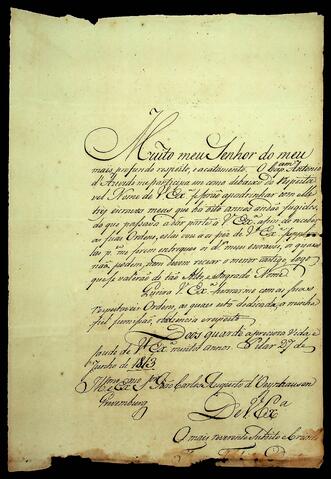 Muito meu Senhor do meu
mais profundo respeito, e acatamento. O Cap.am Antonio
d'Azevedo me participa em como debaixo do Respeita
vel Nome de V. Ex.a
escravos meus que ha oito annos andão fugidos,
do que passando a dar parte a V. Ex.a afim de receber
as suas Ordens,
me forem entregues os d.os meus escravos, os quaes
não podem, nem devem recear o menor castigo, logo
que se valerão de tão Alto, e Sagrado Nome
Queira V. Ex.a honrarme com as suas
respeitaveis Ordens, as quaes está dedicada, a minha
fiel sumissão, obediencia e respeito
Deos guarde a preciosa vida, e
saude de V. Ex.a muitos annos. Pilar 27 de
Junho de 1813
Ill.mo e Ex.mo S.r João Carlos Augusto d'Oeynhausen
Gravemburg
De V. Ex.a
O mais reverente Subdito e Criado